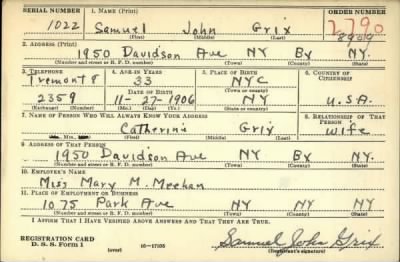 SERIAL NUMBER 1. NAME (Print) ORDER NUMBER
1022 Samuel John Grix 2790
(First) (Middle) (Last)
2. ADDRESS (Print)
1950 Davidson Ave NY Bx NY.
(Number and street or R. F. D. number) (Town) (County) (State)
3. TELEPHONE 4. AGE IN YEARS 5. PLACE OF BIRTH 6. COUNTRY OF CITIZENSHIP
Tremont 8 33 NYC
DATE OF BIRTH (Town or county)
2359 11-27-1906 NY U.S.A.
(Exchange) (Number) (Mo.) (Day) (Yr.) (State or country)
7. NAME OF PERSON WHO WILL ALWAYS KNOW YOUR ADDRESS 8. RELATIONSHIP OF THAT PERSON
Catherine Grix Wife
Mrs. (First) (Middle) (Last)
9. ADDRESS OF THAT PERSON
1950 Davidson Ave NY Bx NY.
(Number and street or R. F. D. number) (Town) (County) (State)
10. EMPLOYER'S NAME
Miss Mary M. Meehan
11. PLACE OF EMPLOYMENT OR BUSINESS
1075 Park Ave NY NY NY
(Number and street or R. F. D. number) (Town) (County) (State)
I AFFIRM THAT I HAVE VERIFIED ABOVE ANSWERS AND THAT THEY ARE TRUE.
REGISTRATION CARD
D. S. S. FORM 1 (over) 16—17105 Samuel John Grix
(Registrant's signature)